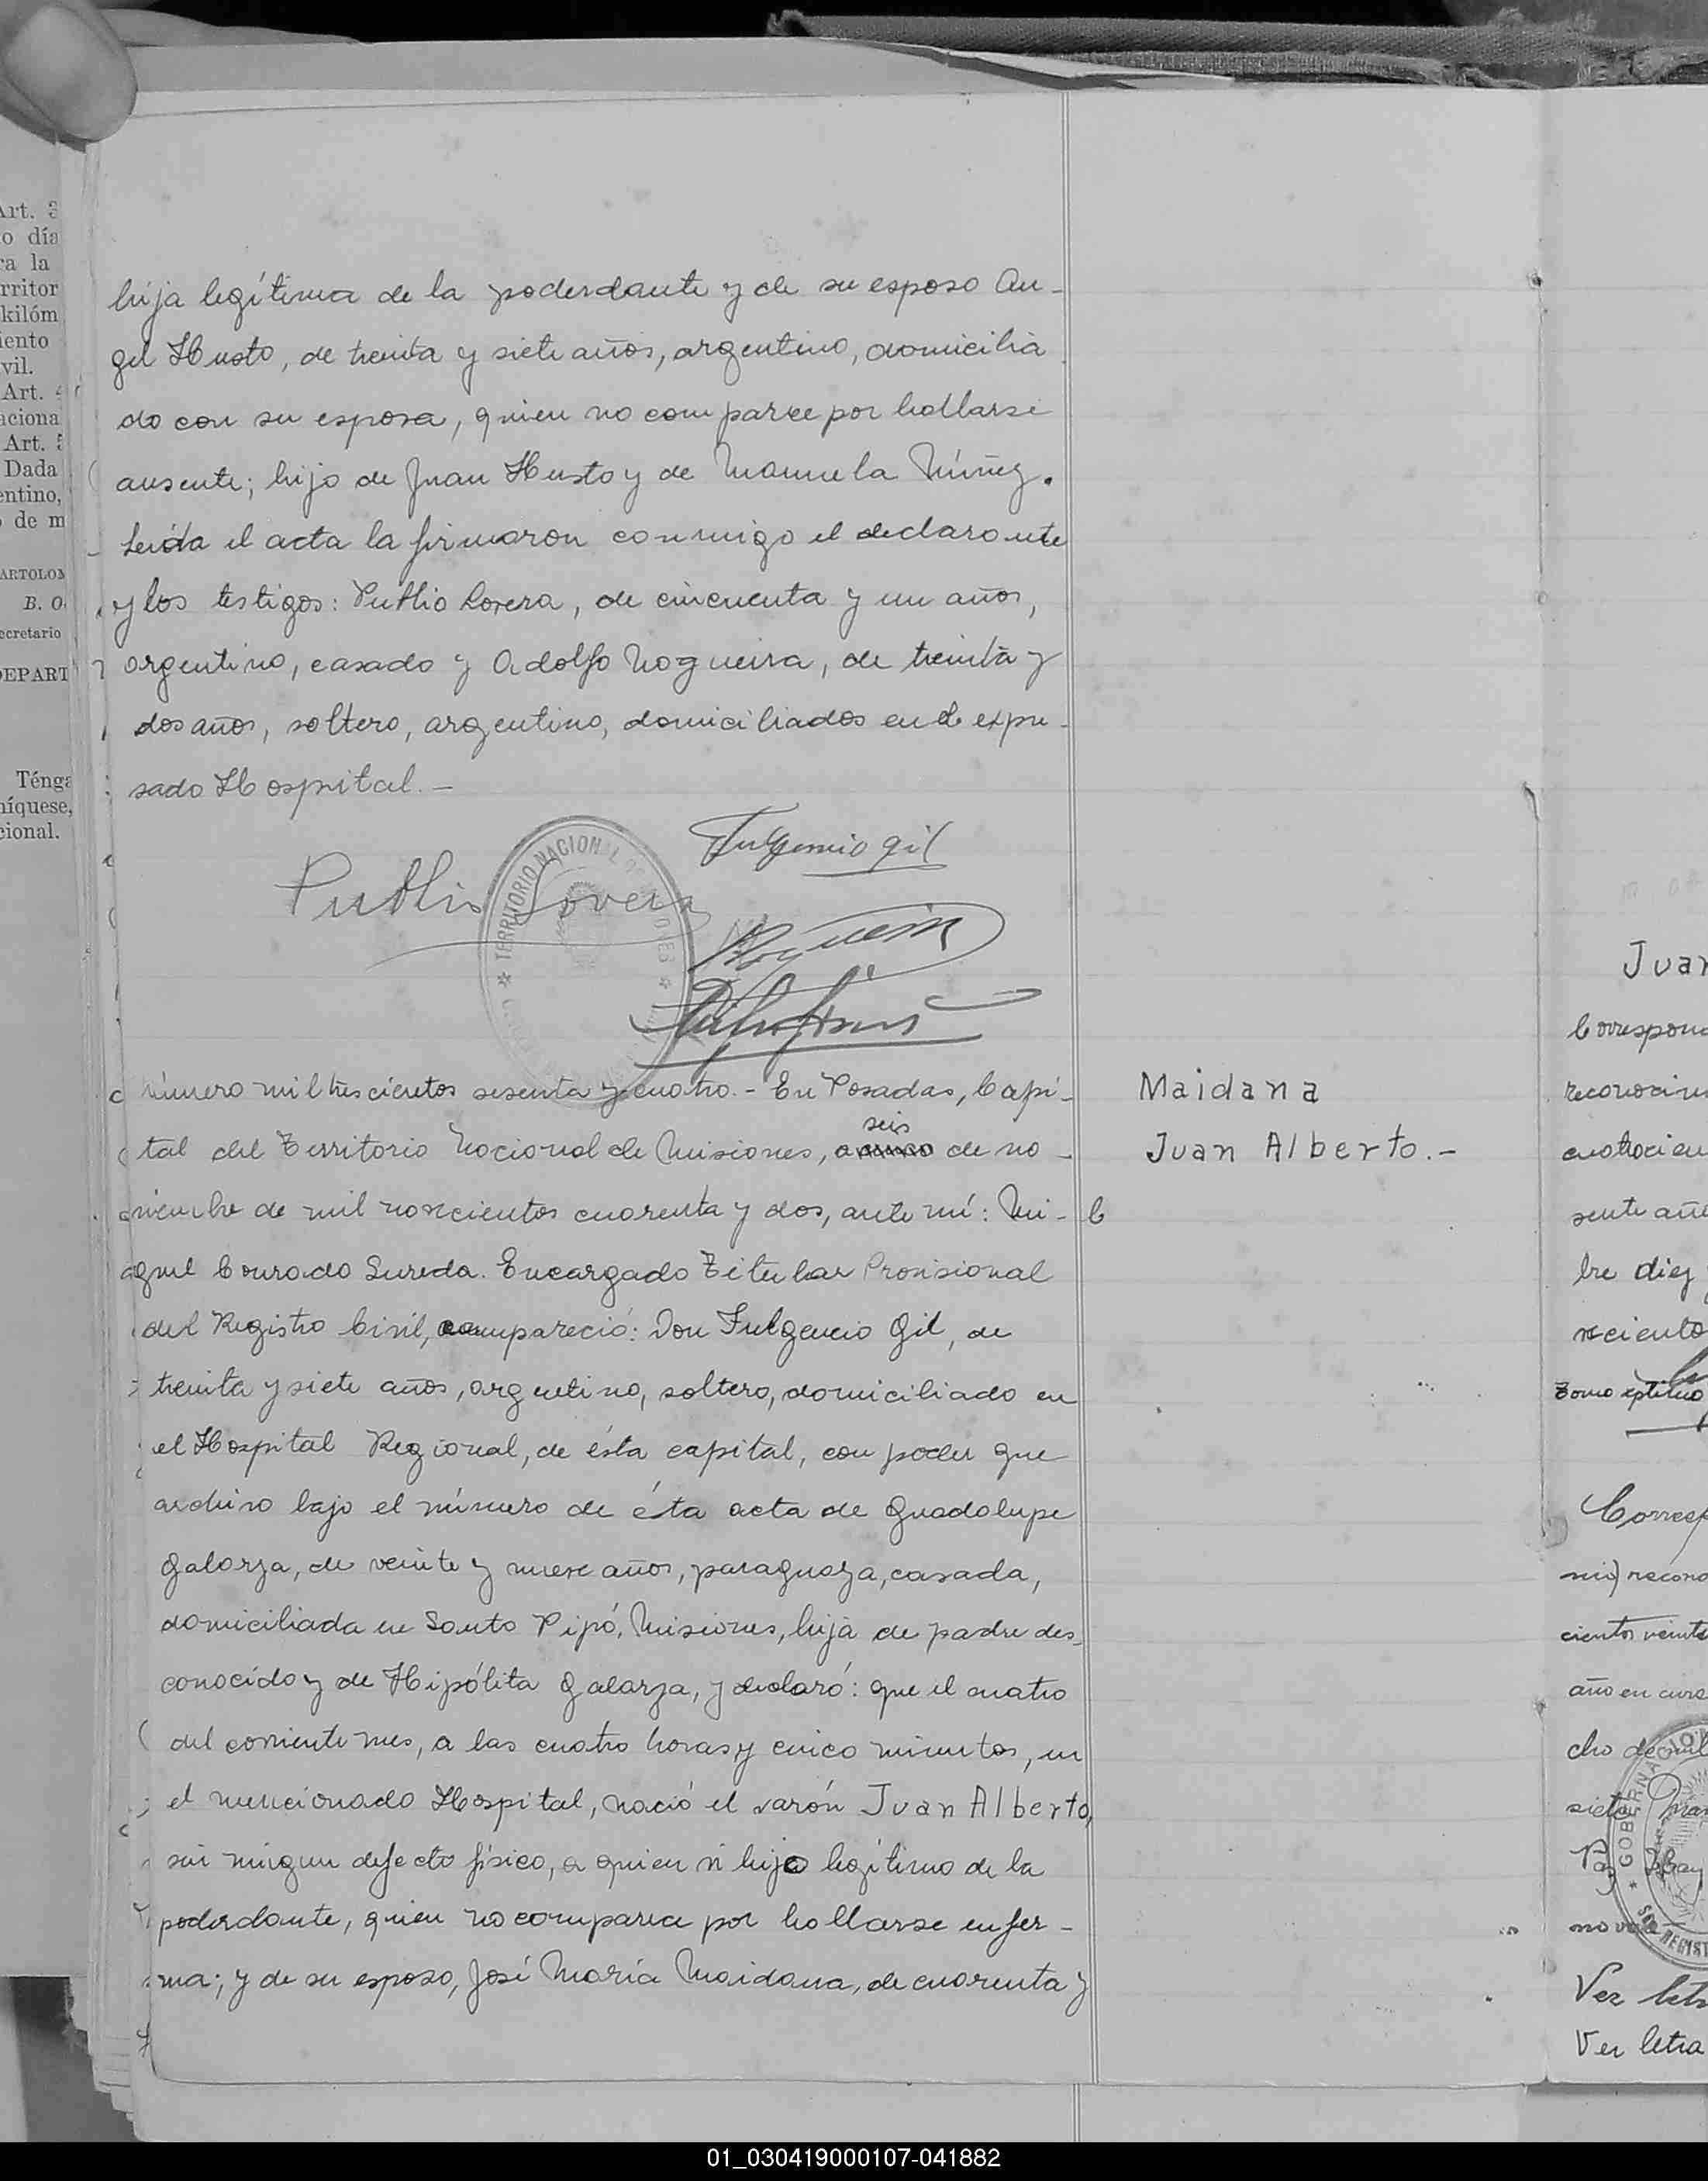 Art. 3
o día
ra la
rritor
kilóm
iento
vil.
Art. 4
aciona
Art. 5
Dada
entino,
o de m
ARTOLOM
B. O.
ecretario
DEPART
Ténga
níquese,
cional.
hija legítima de la poderdante y de su esposo An-
gel Husto, de treinta y siete años, argentino, domicilia
do con su esposa, quien no comparece por hallarse
ausente; hijo de Juan Husto y de Manuela Núñez.
Leída el acta la firmaron conmigo el declarante
y los testigos: Publio Lovera, de cincuenta y un años,
argentino, casado y Adolfo Nogueira, de treinta y
dos años, soltero, argentino, domiciliados en el expre-
sado Hospital.-
Fulgencio Gil
Publio Lovera
TERRITORIO NACIONAL DE MISIONES
Nogueira
número mil trescientos sesenta y cuatro.- En Posadas, Capi-
seis
tal del Territorio Nacional de Misiones, a cinco de no-
viembre de mil novecientos cuarenta y dos, ante mí: Mi-
guel Conrado Sureda. Encargado Titular Provisional
del Registro Civil, compareció: Don Fulgencio Gil, de
treinta y siete años, argentino, soltero, domiciliado en
el Hospital Regional, de ésta capital, con poder que
archivo bajo el número de ésta acta de Guadalupe
Galarza, de veinte y nueve años, paraguaya, casada,
domiciliada en Santo Pipó, Misiones, hija de padre des-
conocido y de Hipólita Galarza, y declaró: que el cuatro
del corriente mes, a las cuatro horas y cinco minutos, en
el mencionado Hospital, nació el varón Juan Alberto,
sin ningun defecto físico, a quien vi hijo legítimo de la
poderdante, quien no comparece por hallarse enfer-
ma; y de su esposo, José María Maidana, de cuarenta y
Maidana
Juan Alberto.-
Juan
Correspond
reconocim
cuatrocien
sente año
bre diez
veciento
Tomo septimo
Corresp
mi) recono
cientos veinte
año en curso
cho de mil
siete
GOBERNACION
REGIST
no vale
Ver letra
Ver letra
01_030419000107-041882